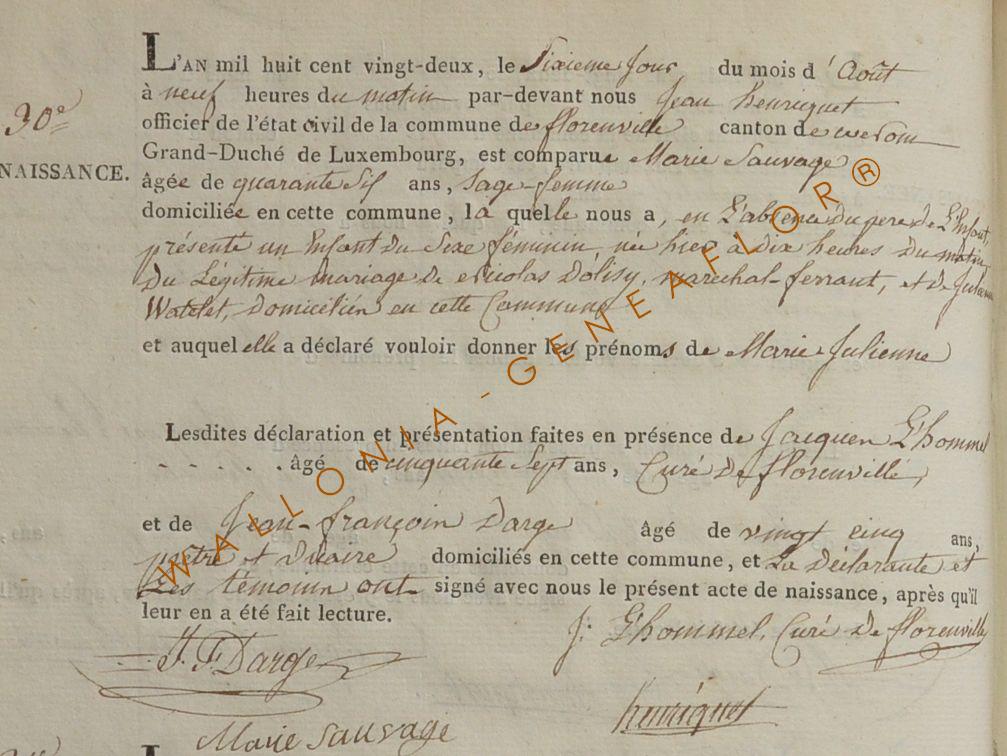 L'AN mil huit cent vingt-deux, le Sixieme Jour du mois d'Août
à neuf heures du matin par-devant nous Jean henriquet
30e
officier de l'état civil de la commune de florenville canton de
NAISSANCE.
Grand-Duché de Luxembourg, est comparue Marie Sauvage
âgée de quarante Six ans, Sage-femme
domiciliée en cette commune, la quelle nous a, en L'absence du pere de L'Enfant,
présenté un Enfant du Sexe féminin, née hier à dix heures du matin
du Légitime mariage de Nicolas Dolisy, marechal-ferrant, et de Julienne
Watelet, domiciliés en cette Commune
et auquel elle a déclaré vouloir donner les prénoms de Marie-Julienne
Lesdites déclaration et présentation faites en présence de Jacques L'hommel
. . . . . . âgé de cinquante Sept ans, Curé de florenville,
et de Jean-françois Darge âgé de vingt cinq ans,
prêtre et vicaire domiciliés en cette commune, et La déclarante et
Les témoins ont signé avec nous le présent acte de naissance, après qu'il
leur en a été fait lecture.
J: L'hommel, Curé de florenville
J. F. Darge
henriquet
Marie Sauvage
WALLONIA-GENEAFLOR®